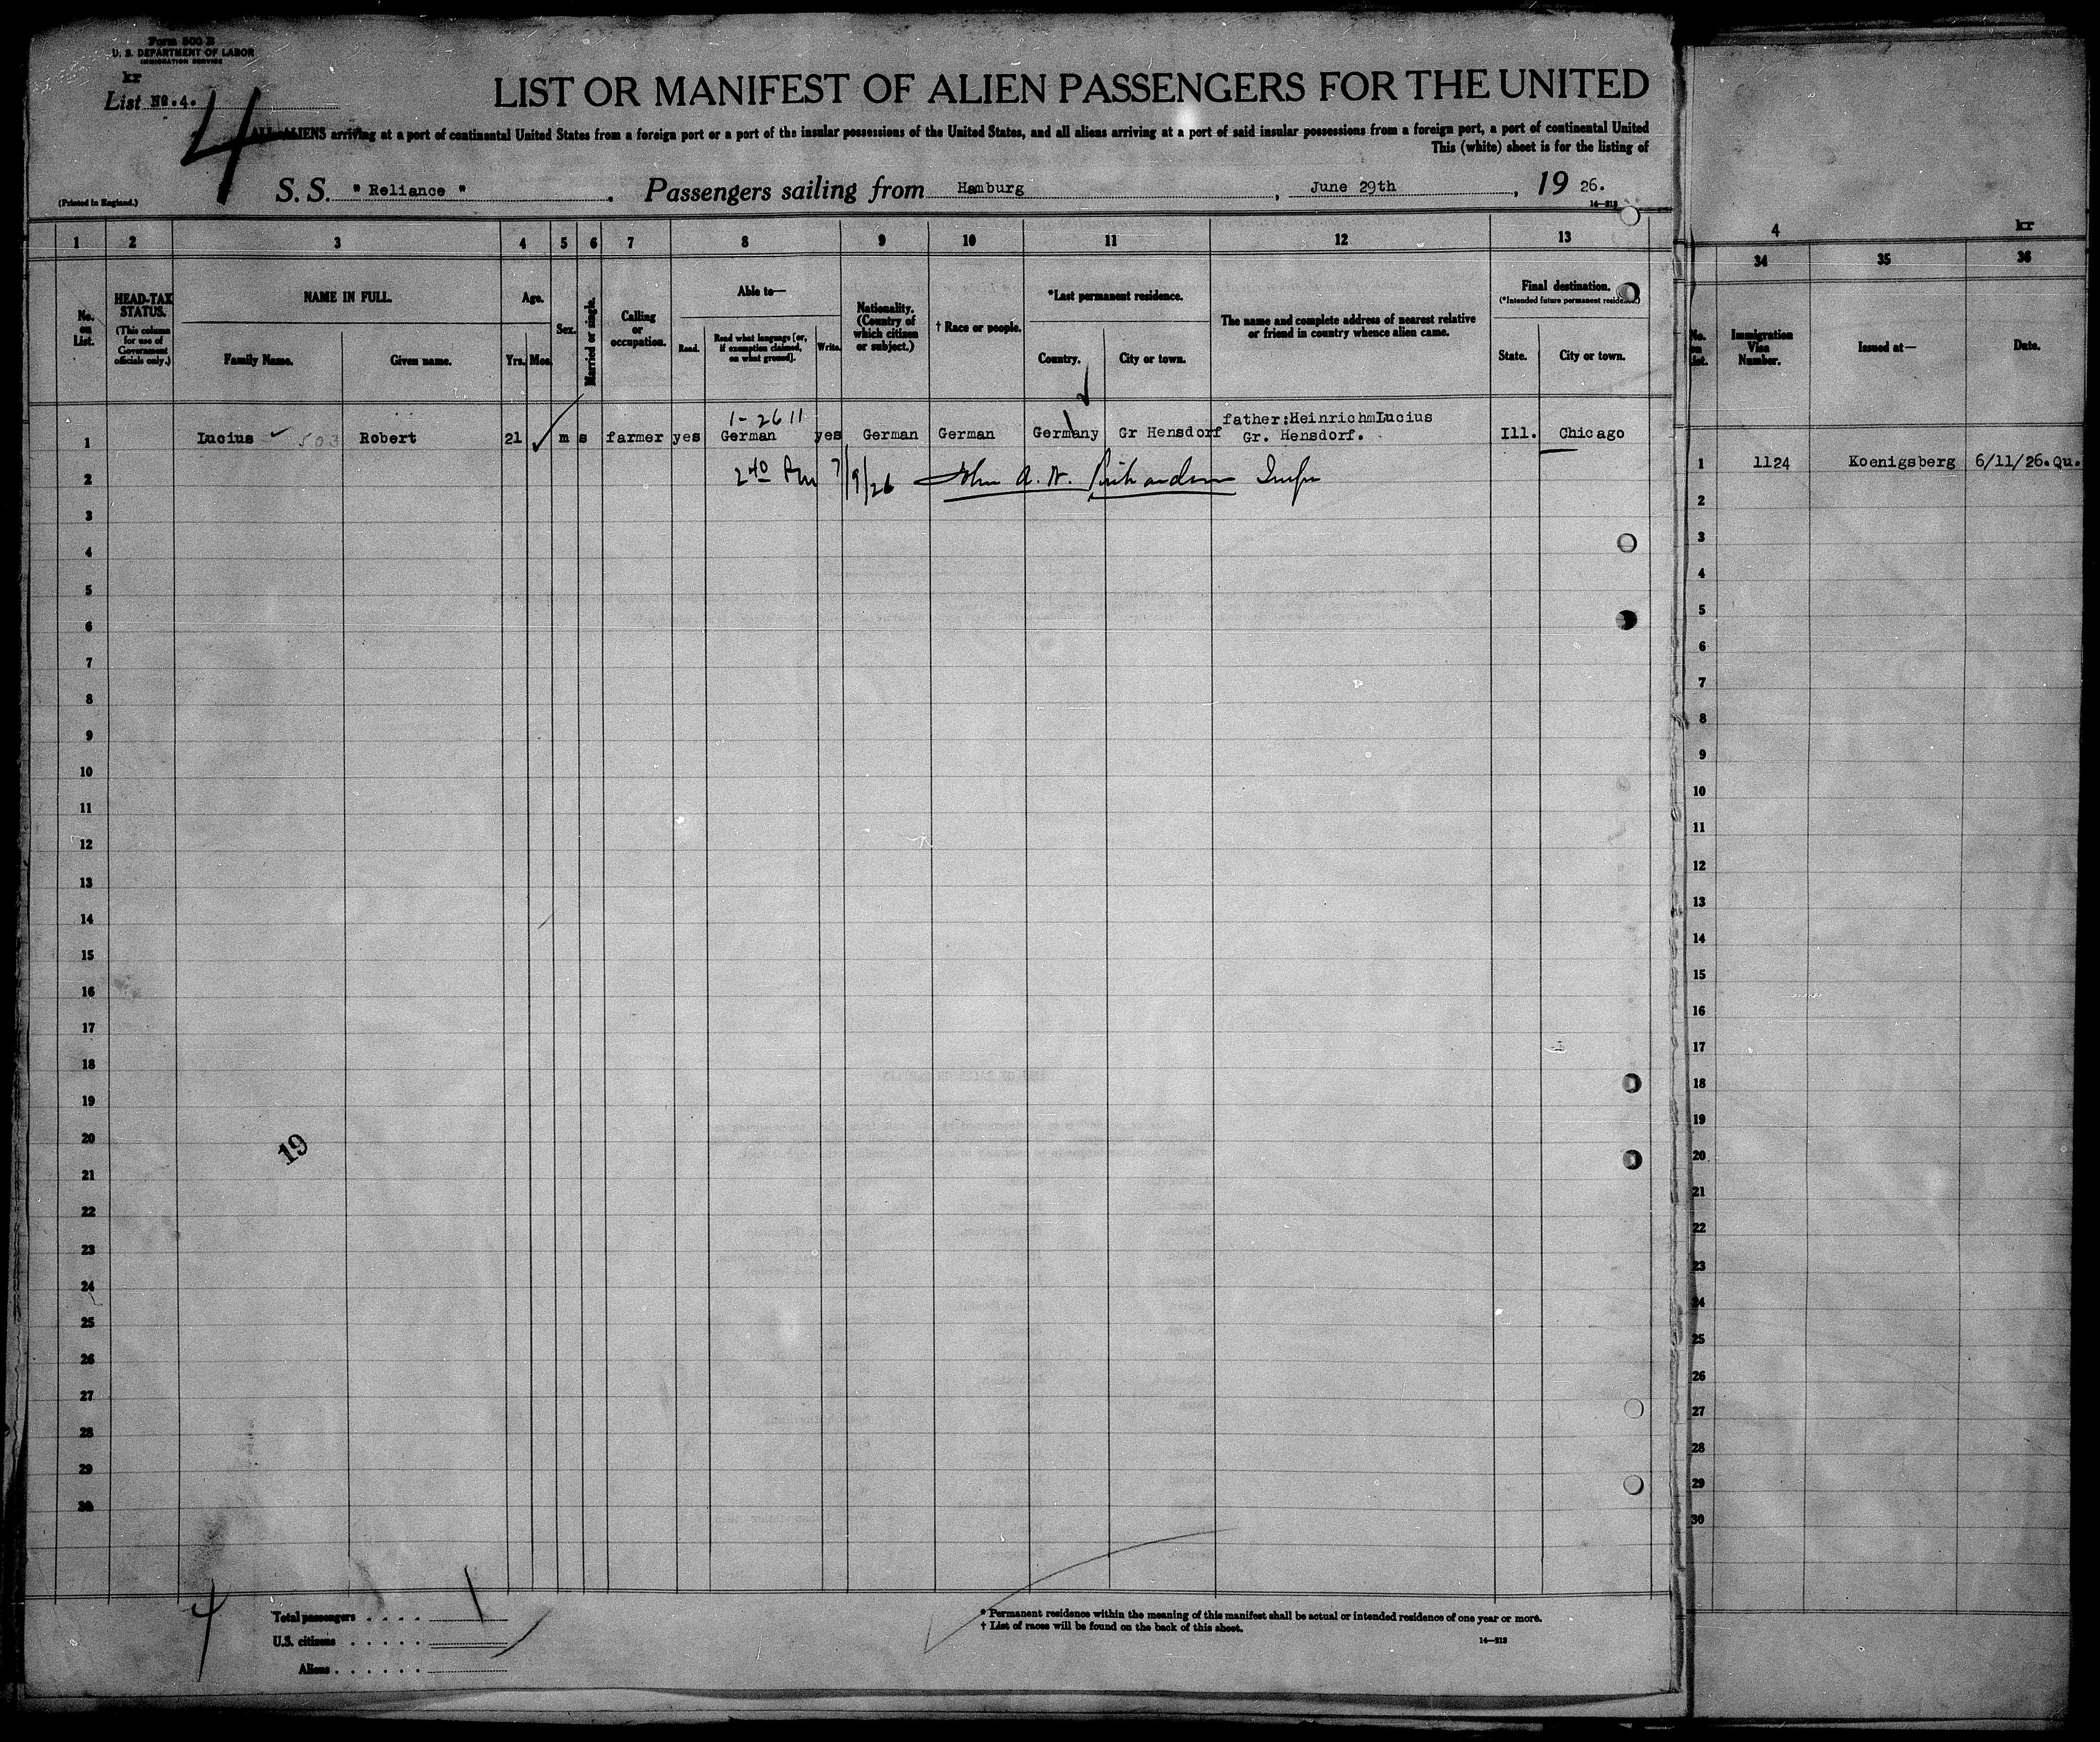 Form 500 B
U. S. DEPARTMENT OF LABOR
IMMIGRATION SERVICE
kr
List No. 4.
4
LIST OR MANIFEST OF ALIEN PASSENGERS FOR THE UNITED
ALL ALIENS arriving at a port of continental United States from a foreign port or a port of the insular possessions of the United States, and all aliens arriving at a port of said insular possessions from a foreign port, a port of continental United
This (white) sheet is for the listing of
(Printed in England.)
S. S. " Reliance " . Passengers sailing from Hamburg , June 29th , 19 26.
14—213
4 kr
1 2 3 4 5 6 7 8 9 10 11 12 13
34 35 36
No. on List.
HEAD-TAX STATUS.
(This column for use of Government officials only.)
NAME IN FULL.
Family Name. Given name.
Age.
Yrs. Mos.
Sex.
Married or single.
Calling or occupation.
Able to—
Read. Read what language [or, if exemption claimed, on what ground]. Write.
Nationality. (Country of which citizen or subject.)
† Race or people.
*Last permanent residence.
Country. City or town.
The name and complete address of nearest relative or friend in country whence alien came.
Final destination.
(*Intended future permanent residence.)
State. City or town.
No. on List.
Immigration Visa Number.
Issued at—
Date.
1- 2611
father:HeinrichmLucius
1 Lucius 503 Robert 21 m s farmer yes German yes German German Germany Gr Hensdorf Gr. Hensdorf. Ill. Chicago
1 1124 Koenigsberg 6/11/26.Qu.
2 2 40 Pm 7/9/26 John A. W. Richardson Insp
3
4
5
6
7
8
9
10
11
12
13
14
15
16
17
18
19
20
19
21
22
23
24
25
26
27
28
29
30
2
3
4
5
6
7
8
9
10
11
12
13
14
15
16
17
18
19
20
21
22
23
24
25
26
27
28
29
30
4
Total passengers . . . . 1
U.S. citizens . . . . .
Aliens . . . . . .
* Permanent residence within the meaning of this manifest shall be actual or intended residence of one year or more.
† List of races will be found on the back of this sheet.
14—213